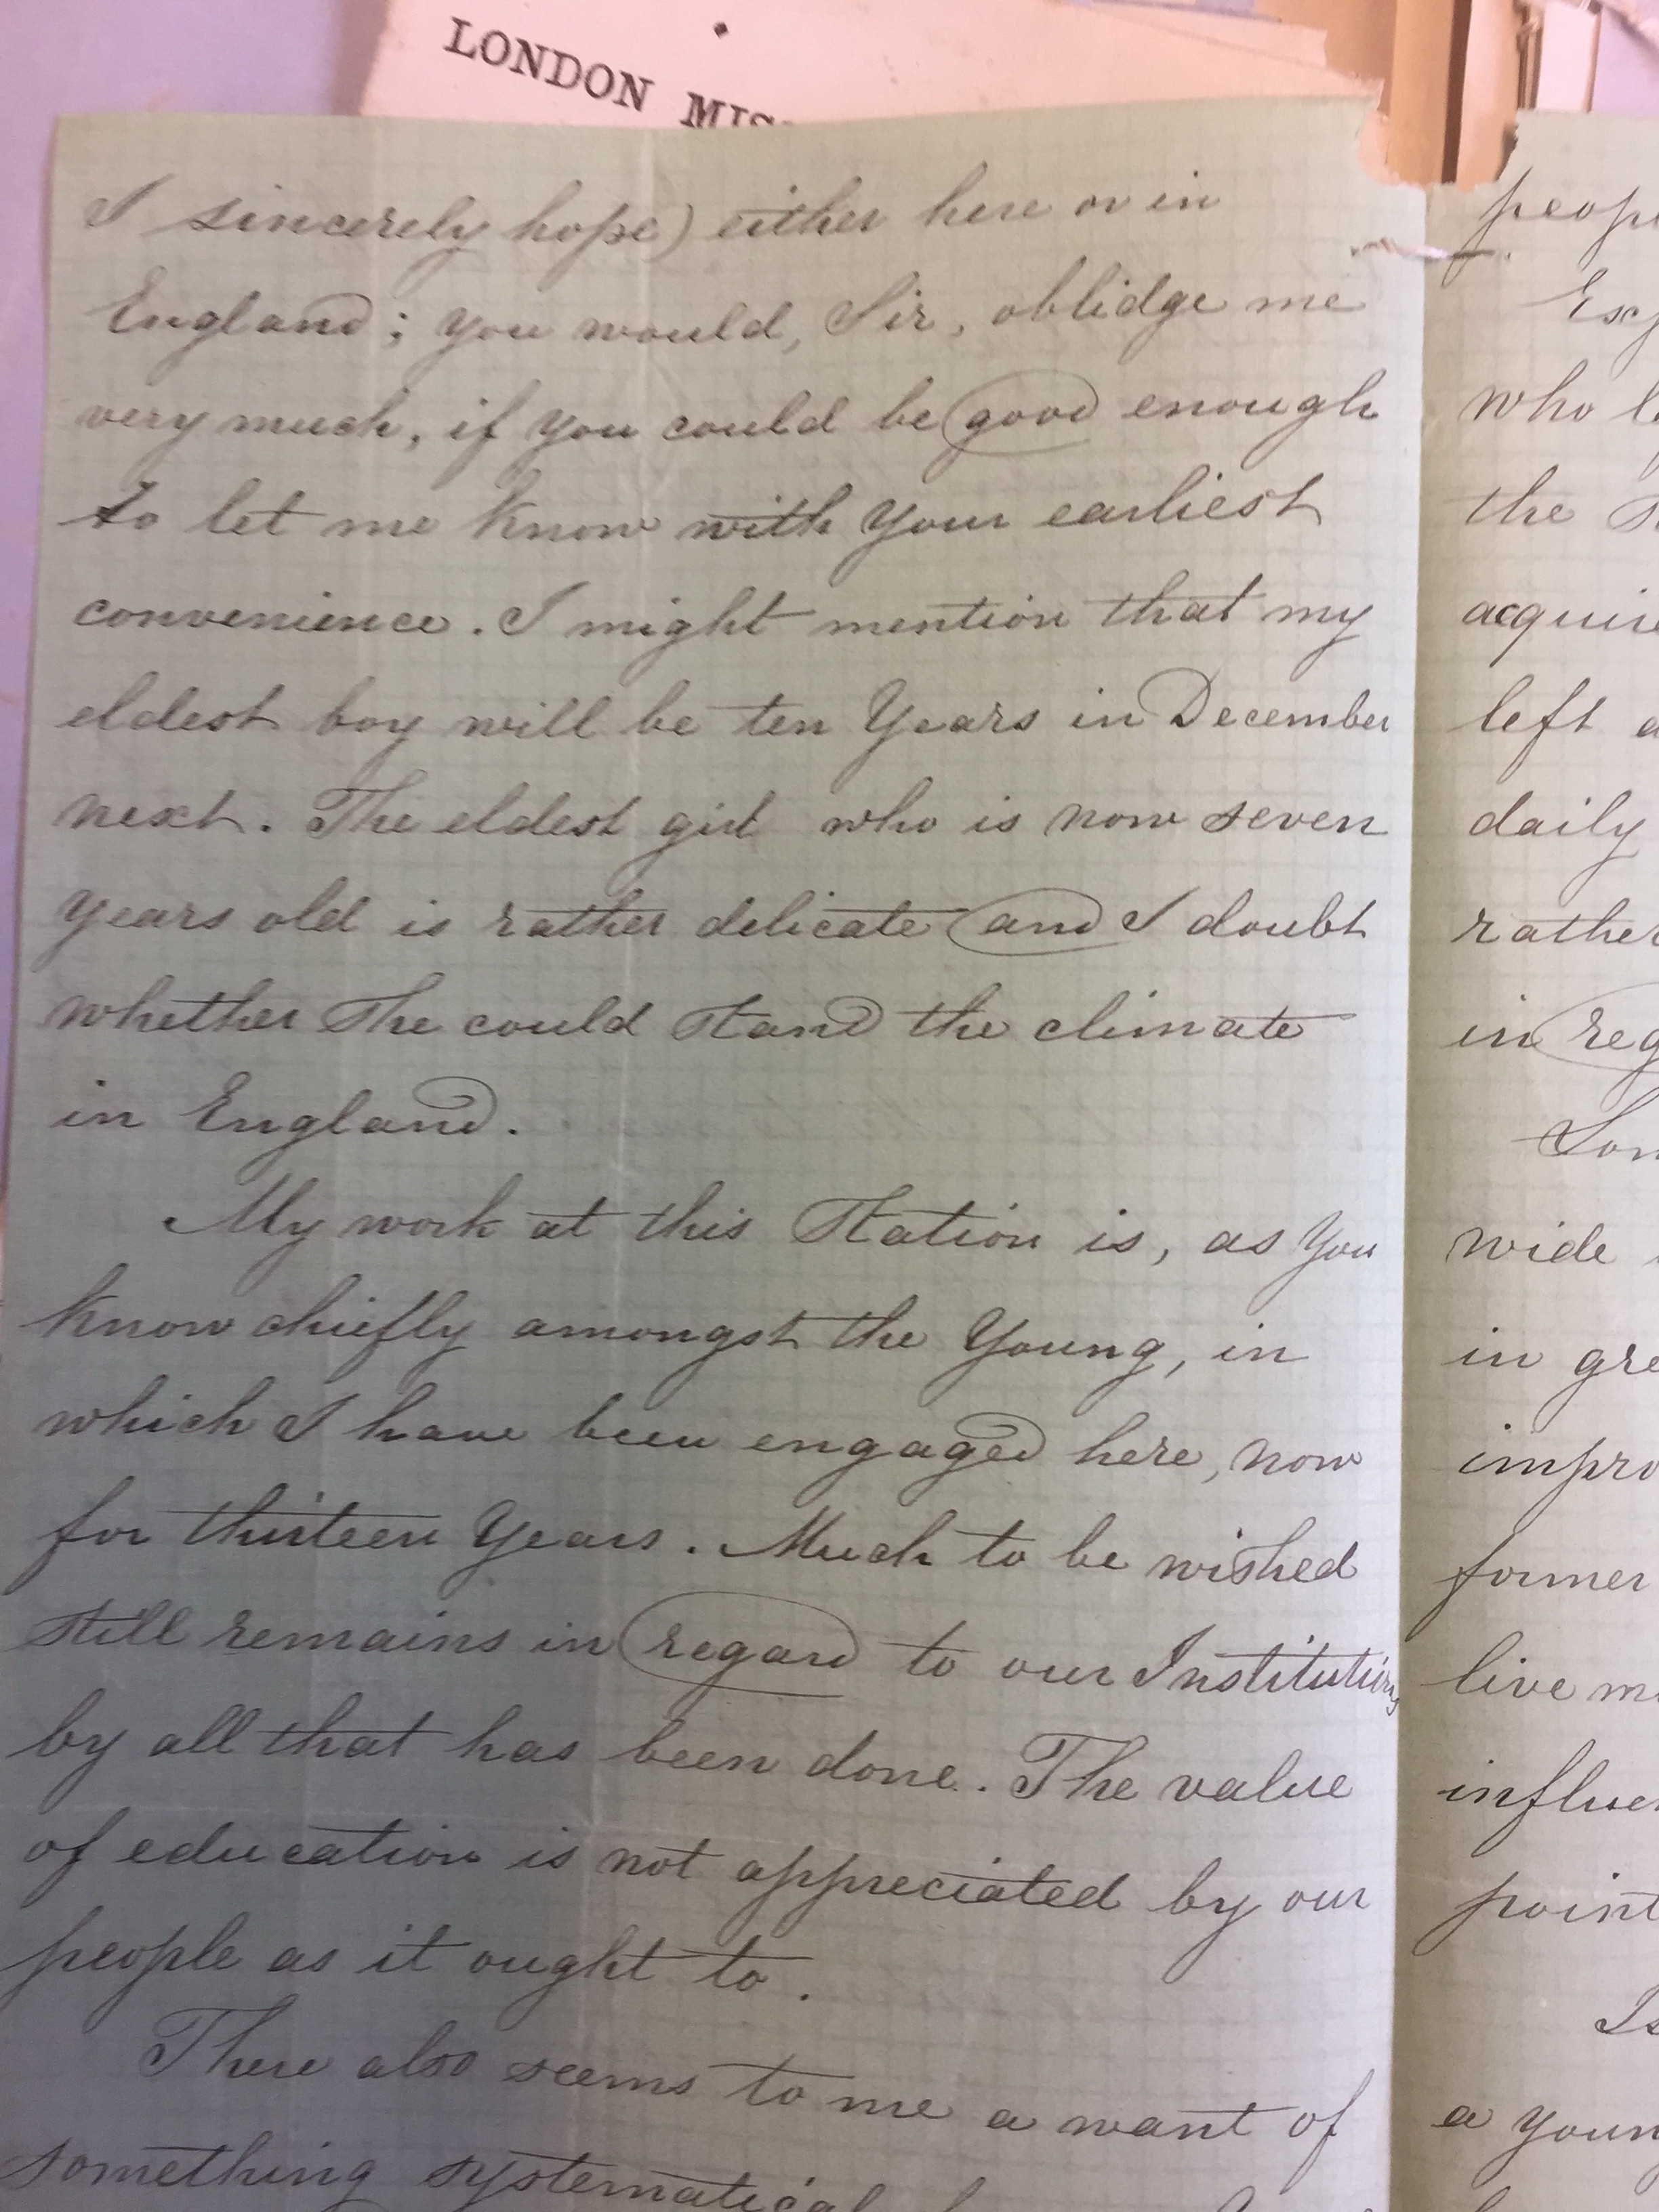 LONDON
I sincerely hope) either here or in
England; you would, Sir, oblidge me
very much, if you could be good enough
to let me know with your earliest
convenience. I might mention that my
eldest boy will be ten Years in December
next. The eldest girl who is now seven
years old is rather delicate and I doubt
whether She could Stand the climate
in England.
My work at this Station is, as you
know chiefly amongst the Young, in
which I have been engaged here, now
for thirteen Years. Much to be wished
still remains in regard to our Institutions
by all that has been done. The value
of education is not appreciated by our
people as it ought to.
There also seems to me a want of
something systematical
who
the
left
daily
in
wide
in
former
live
point
a